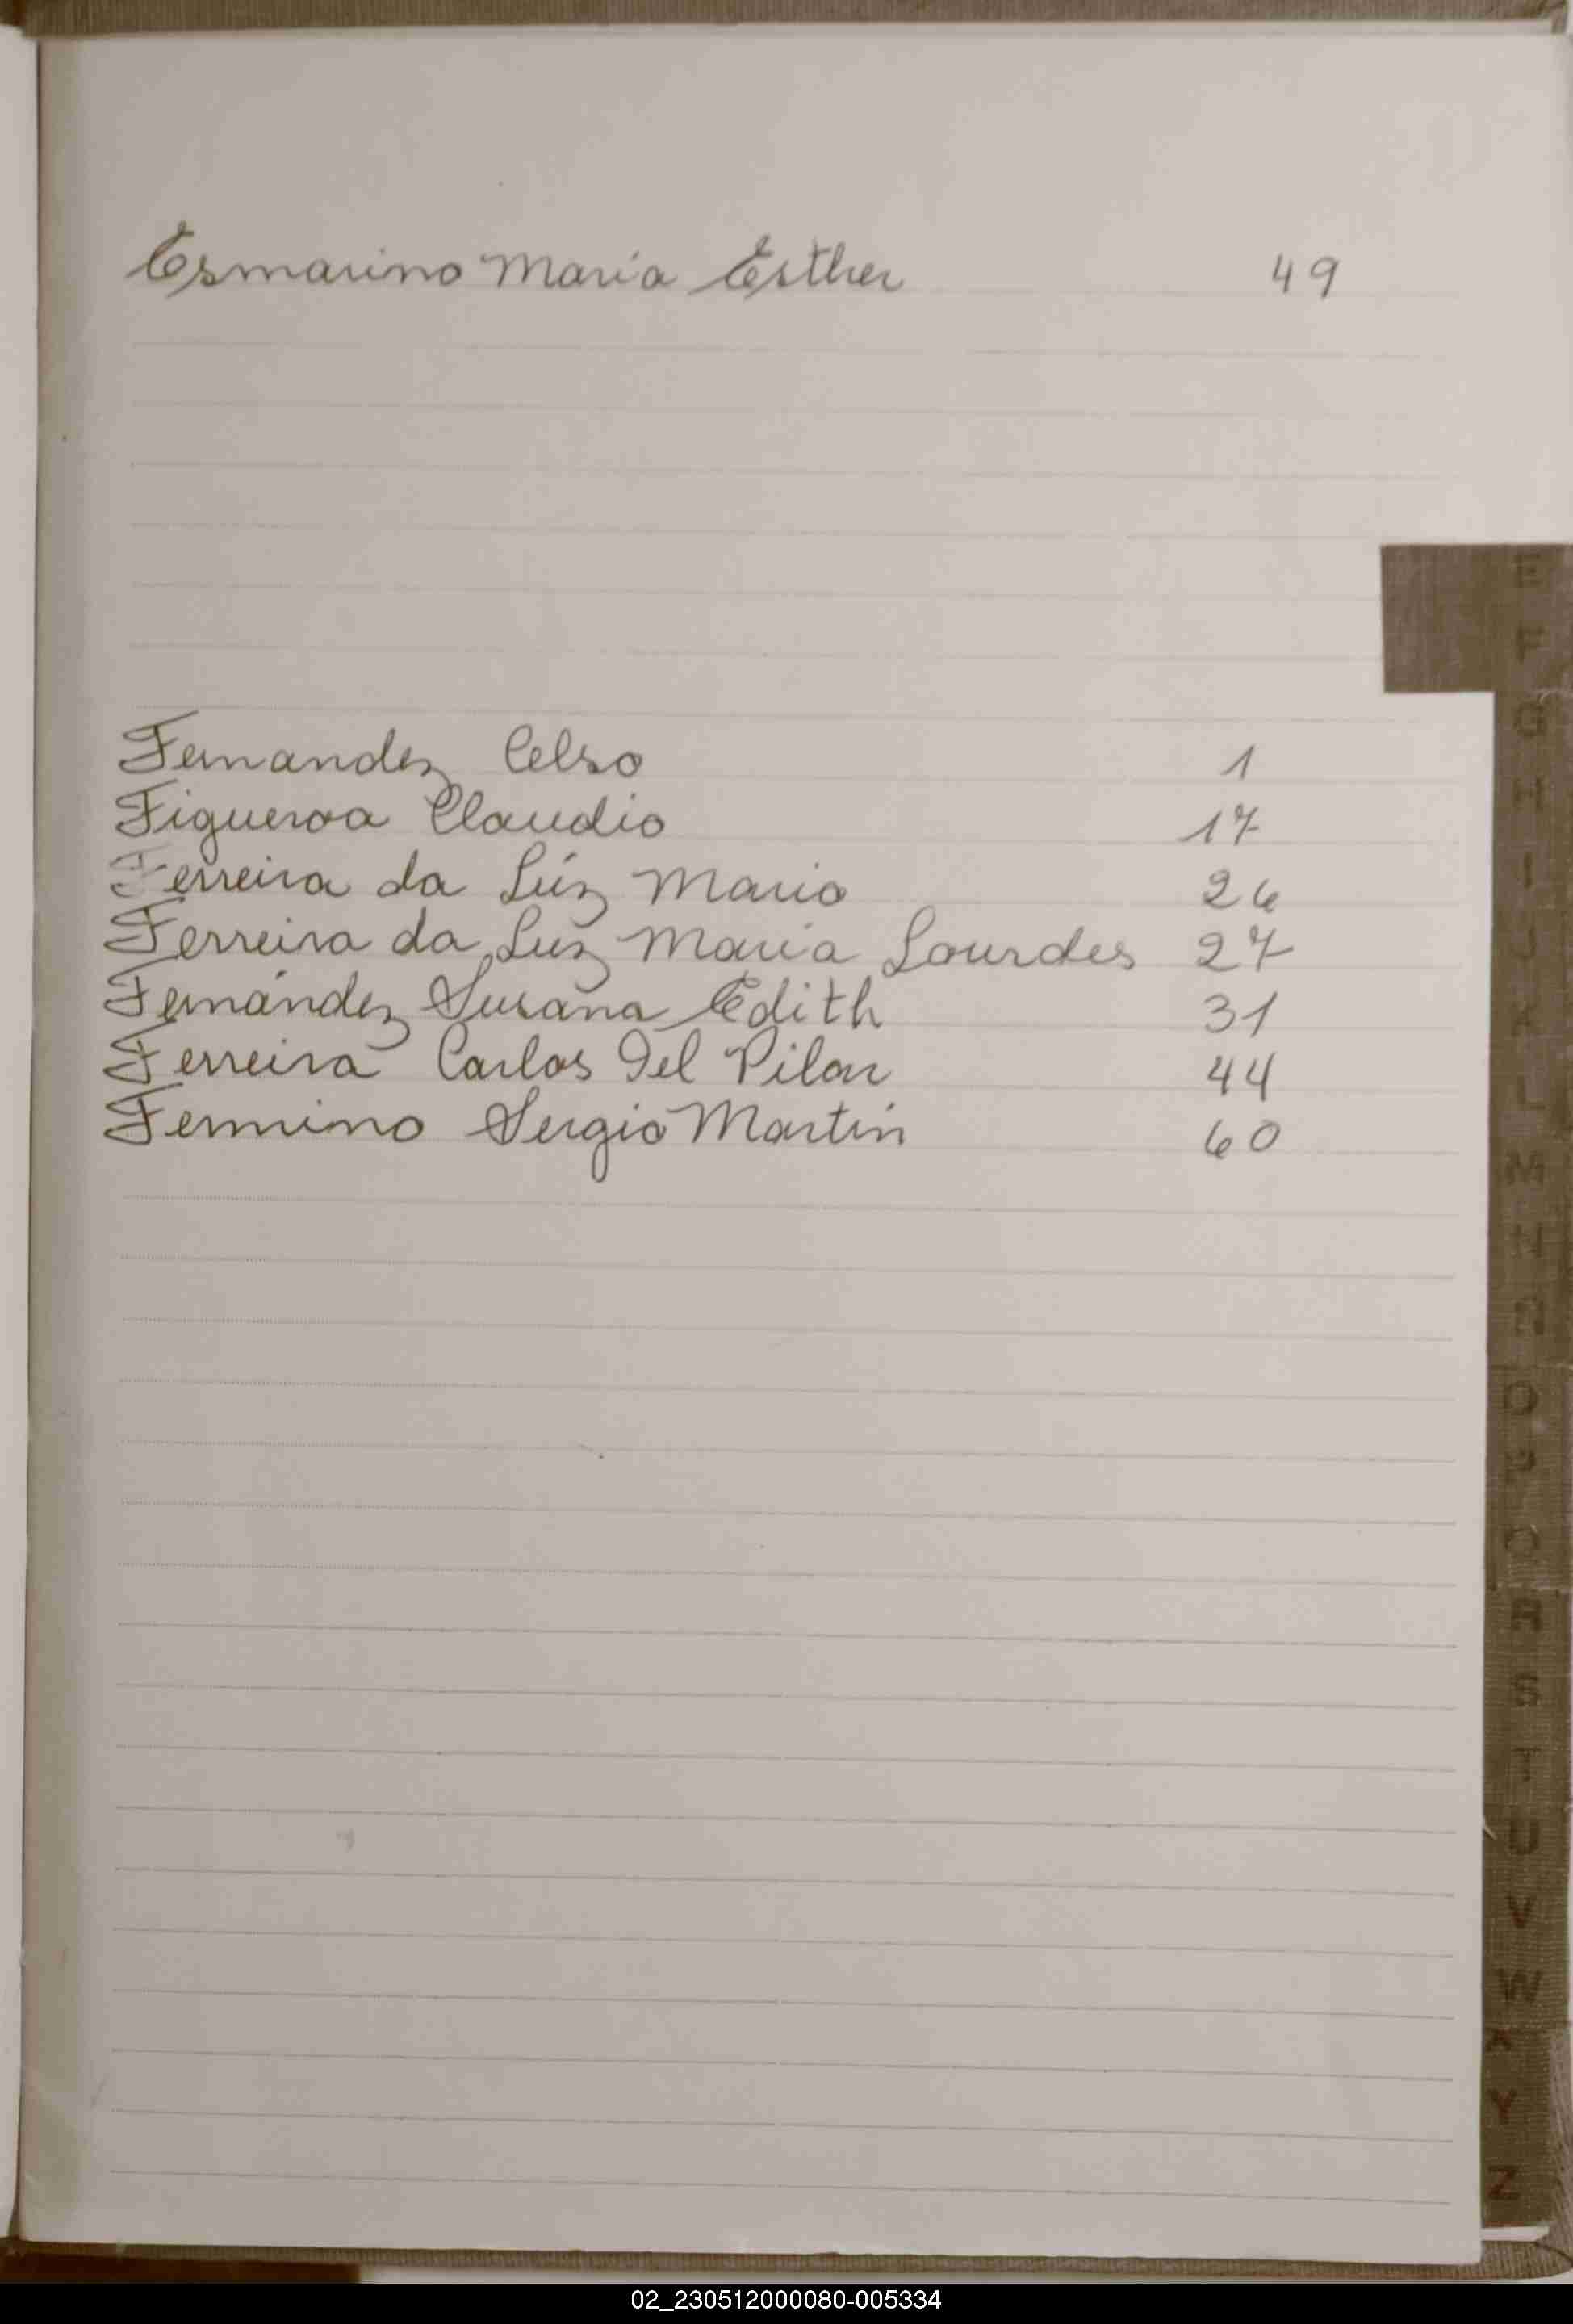 Esmarino Maria Esther 49
Fernandez Celso 1
Figueroa Claudio 17
Ferreira da Lúz Mario 26
Ferreira da Luz Maria Lourdes 27
Fernández Susana Edith 31
Ferreira Carlos Del Pilar 44
Sergio Martin 60
E
F
G
H
I
J
K
L
M
N
Ñ
O
P
Q
R
S
T
U
V
W
X
Y
Z
02_230512000080-005334